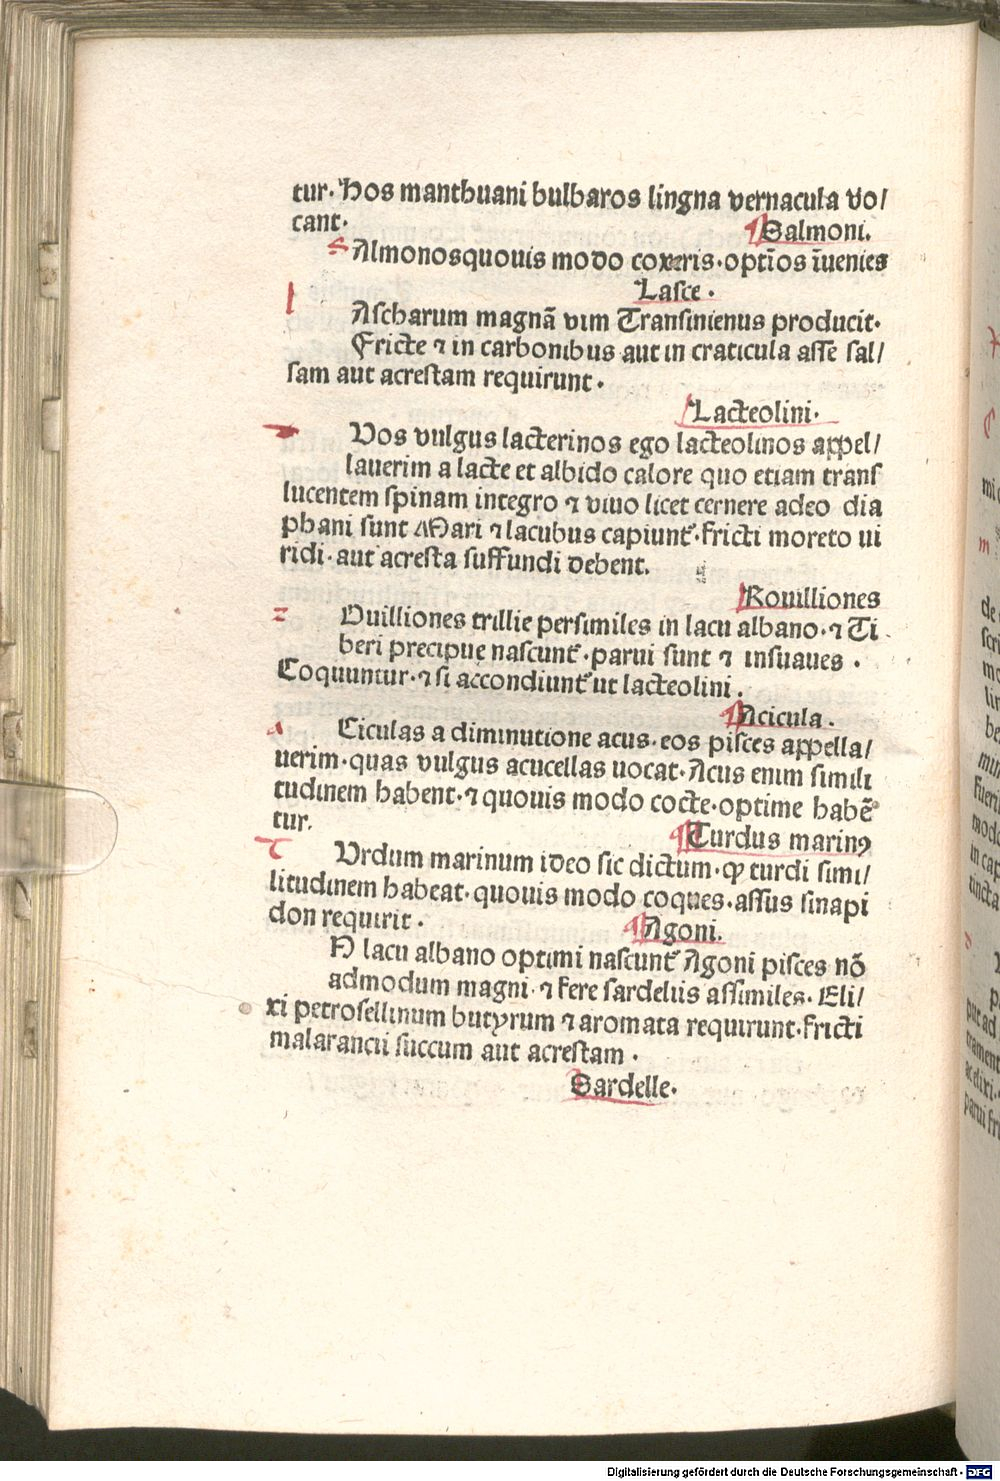 tur. Hos manthuani bulbaros lingna vernacula vo/
cant.
Salmoni.
s Almonosquouis modo coxeris. optīos īuenies
Lasce.
l Ascharum magnā vim Transinienus producit.
Fricte ⁊ in carbonibus aut in craticula asse sal/
sam aut acrestam requirunt.
Lacteolini.
Vos vulgus lacterinos ego lacteolinos appel/
lauerim a lacte et albido calore quo etiam trans
lucentem spinam integro ⁊ viuo licet cernere adeo dia
phani sunt Mari ⁊ lacubus capiunt᷑. fricti moreto ui
ridi. aut acresta suffundi debent.
Rouilliones
r Ouilliones trillie persimiles in lacu albano. ⁊ Ti
beri precipue nascunt᷑. parui sunt ⁊ insuaues.
Coquuntur. ⁊ si accondiunt᷑ ut lacteolini.
Acicula.
a Ciculas a diminutione acus. eos pisces appella/
uerim. quas vulgus acucellas uocat. Acus enim simili
tudinem habent. ⁊ quouis modo cocte. optime habē
tur.
Turdus marinꝯ
t Vrdum marinum ideo sic dictum. ꝙ turdi simi/
litudinem habeat. quouis modo coques. assus sinapi
don requirit.
Agoni.
A lacu albano optimi nascunt᷑ Agoni pisces nō
admodum magni. ⁊ fere sardeliis assimiles. Eli/
xi petrosellinum butyrum ⁊ aromata requirunt. fricti
malarancii succum aut acrestam.
Sardelle.
Digitalisierung gefördert durch die Deutsche Forschungsgemeinschaft - DFG